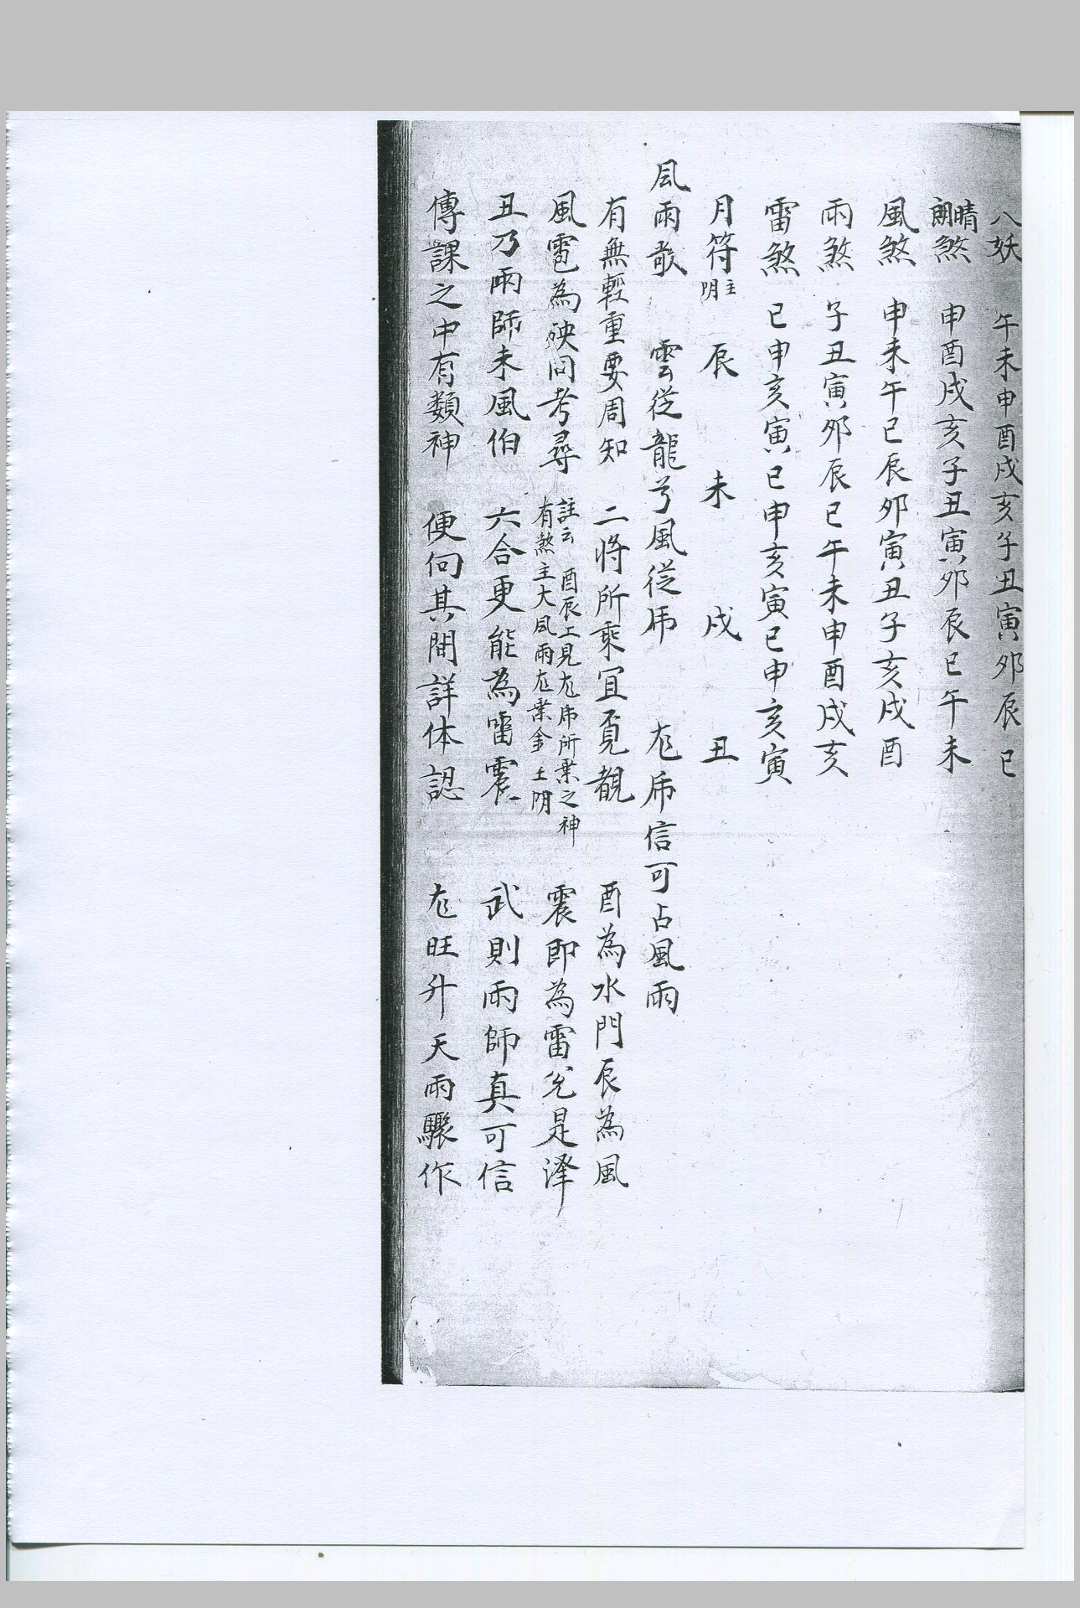 八妖 午未申酉戌亥子丑寅卯辰巳
晴朗煞 申酉戌亥子丑寅卯辰巳午未
風煞 申未午巳辰卯寅丑子亥戌酉
雨煞 子丑寅卯辰巳午未申酉戌亥
雷煞 巳申亥寅巳申亥寅巳申亥寅
月符 主明 辰 未 戌 丑
風雨歌 雲従龍兮風従虎 龙虎信可占風雨
有無輕重要周知 二將所乘宜覓覩 酉為水門辰為風
風雹為殃问考尋 註云 酉辰上見龙虎所乗之神
有煞主大風雨龙乗金土明 震即為雷兌是澤
丑乃雨師未風伯 六合更能為雷震 武則雨師真可信
傳課之中有類神 便向其間詳体認 龙旺升天雨驟作